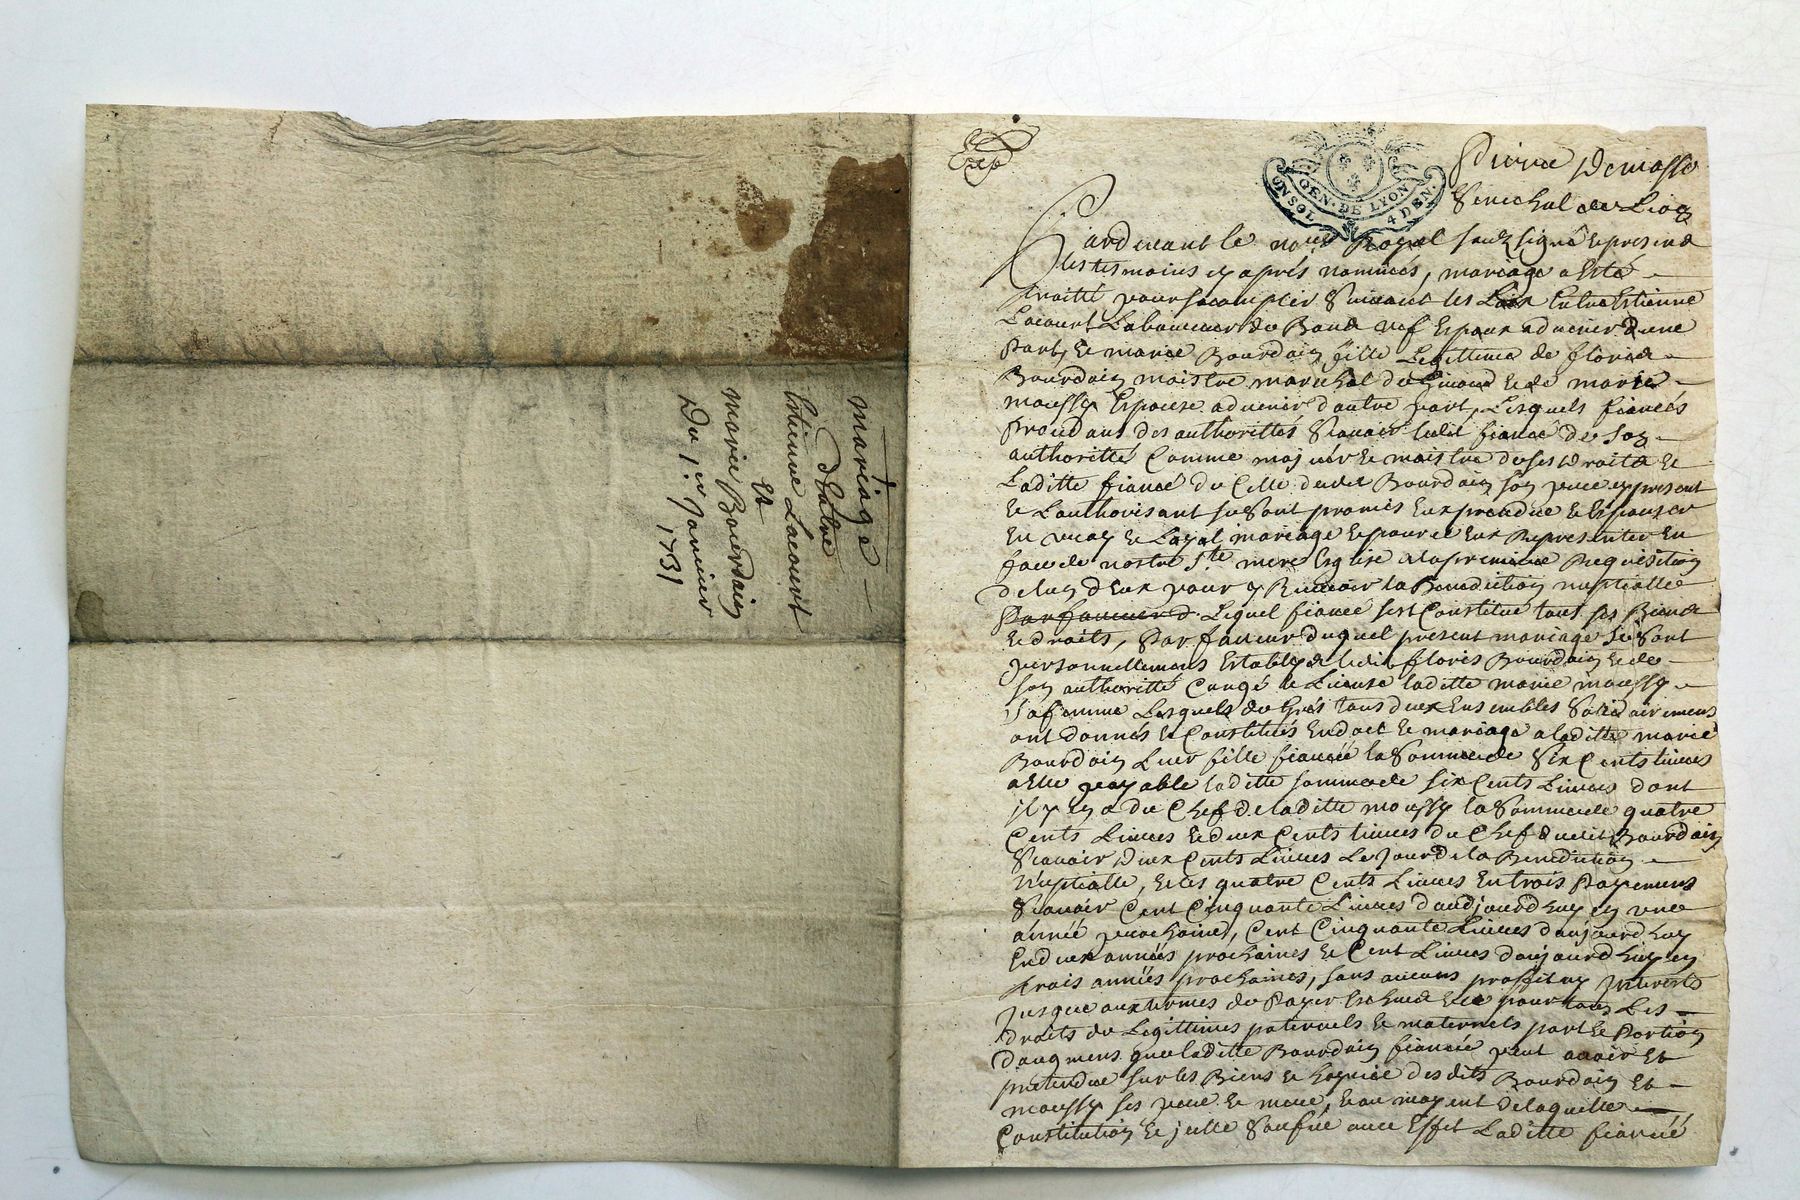 mariage
d'Entre
Estienne Lacourt
Et
marie Bourdain
Du 1er Janvier
1731
GEN. DE LYON
UN SOL 4 DEN.
Pierre Demasso
Senechal de Lion
Pardevant le nore Royal soubzsigné et presend
les tesmoins cy aprés nommés, mariage a Esté
traitté pour sacomplir Suivant les Loix Entre Estienne
Lacourt Laboureur du Espoux advenir d'une
Part, Et marie Bourdain fille Legittime de floris
Bourdain maistre marechal de Et de marie
moussy Espouse advenir d'autre part, Lesquels fiancés
procedans des authorittés Scavoir ledit fiancé de son
authoritté Comme majeur Et maistre de ses droits Et
Laditte fiancé de Celle dudit Bourdain son pere cy present
Et Lauthorisant se sont promis Eux prendre Et Espouser
En vray Et Loyal mariage Et pour ce Eux Representer En
face de nostre Ste mere Esglise a la premiere Requisition
de lun d'Eux pour y Recevoir la Benediction nuptialle
Par faveur d Lequel fiancé sest Constitué tous ses Biens
Et droits, Par faveur duquel present mariage se sont
personnellement Establys ledit floris Bourdain Et de
son authoritté Congé Et Licence laditte marie moussy
sa femme Lesquels de Grés tous deux Ensembles Solidairement
ont donnés Et Constitués En dot Et mariage a laditte marie
Bourdain Leur fille fiancée la Somme de Six Cents livres
a Elle payable laditte somme de six Cents Livres dont
il y En a du Chef de laditte moussy la Somme de quatre
Cents Livres Et deux Cents livres du Chef dudit Bourdain
Scavoir deux Cents Livres Le Jour de la Benediction
Nuptialle, Et les quatre Cents Livres En trois Payemens
Scavoir Cent Cinquante Livres d'audjourd'huy En une
année prochaine, Cent Cinquante Livres daujourdhuy
En deux années prochaines Et Cent Livres daujourdhuy En
trois années prochaines, sans aucuns proffit ny Interests
Jusque aux termes de Payer Escheus Et ce pour tous Les
droits de Legittimes paternels Et maternels part Et Portion
daugment que laditte Bourdain fiancée peut avoir Et
pretendre sur les Biens Et hoyrie desdits Bourdain Et
moussy ses pere Et mere, Et au moyent de laquelle
Constitution Et Icelle Sortie avec Effet Laditte fiancée